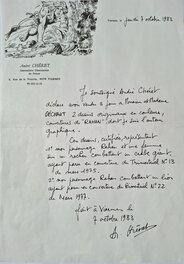 Viarmes, le jeudi 7 octobre 1983
André CHÉRET
Dessinateur
Je soussigné André Chéret
déclare avoir vendu ce jour à Monsieur et Madame
DÉCHAUT 2 dessins originaux en couleurs,
couverture de "RAHAN" dont je suis l'auteur
graphique.
Ces dessins, certifiés, représentent
1° mon personnage Rahan et une femme
sur un rocher combattant un crabe géant,
ayant paru en couverture du Trimestriel N° 13
de mars 1975.
2° mon personnage Rahan combattant un lion
ayant paru en couverture du bimestriel N° 22
de Mars 1977.
Fait à Viarmes le
7 octobre 1983
A. Chéret